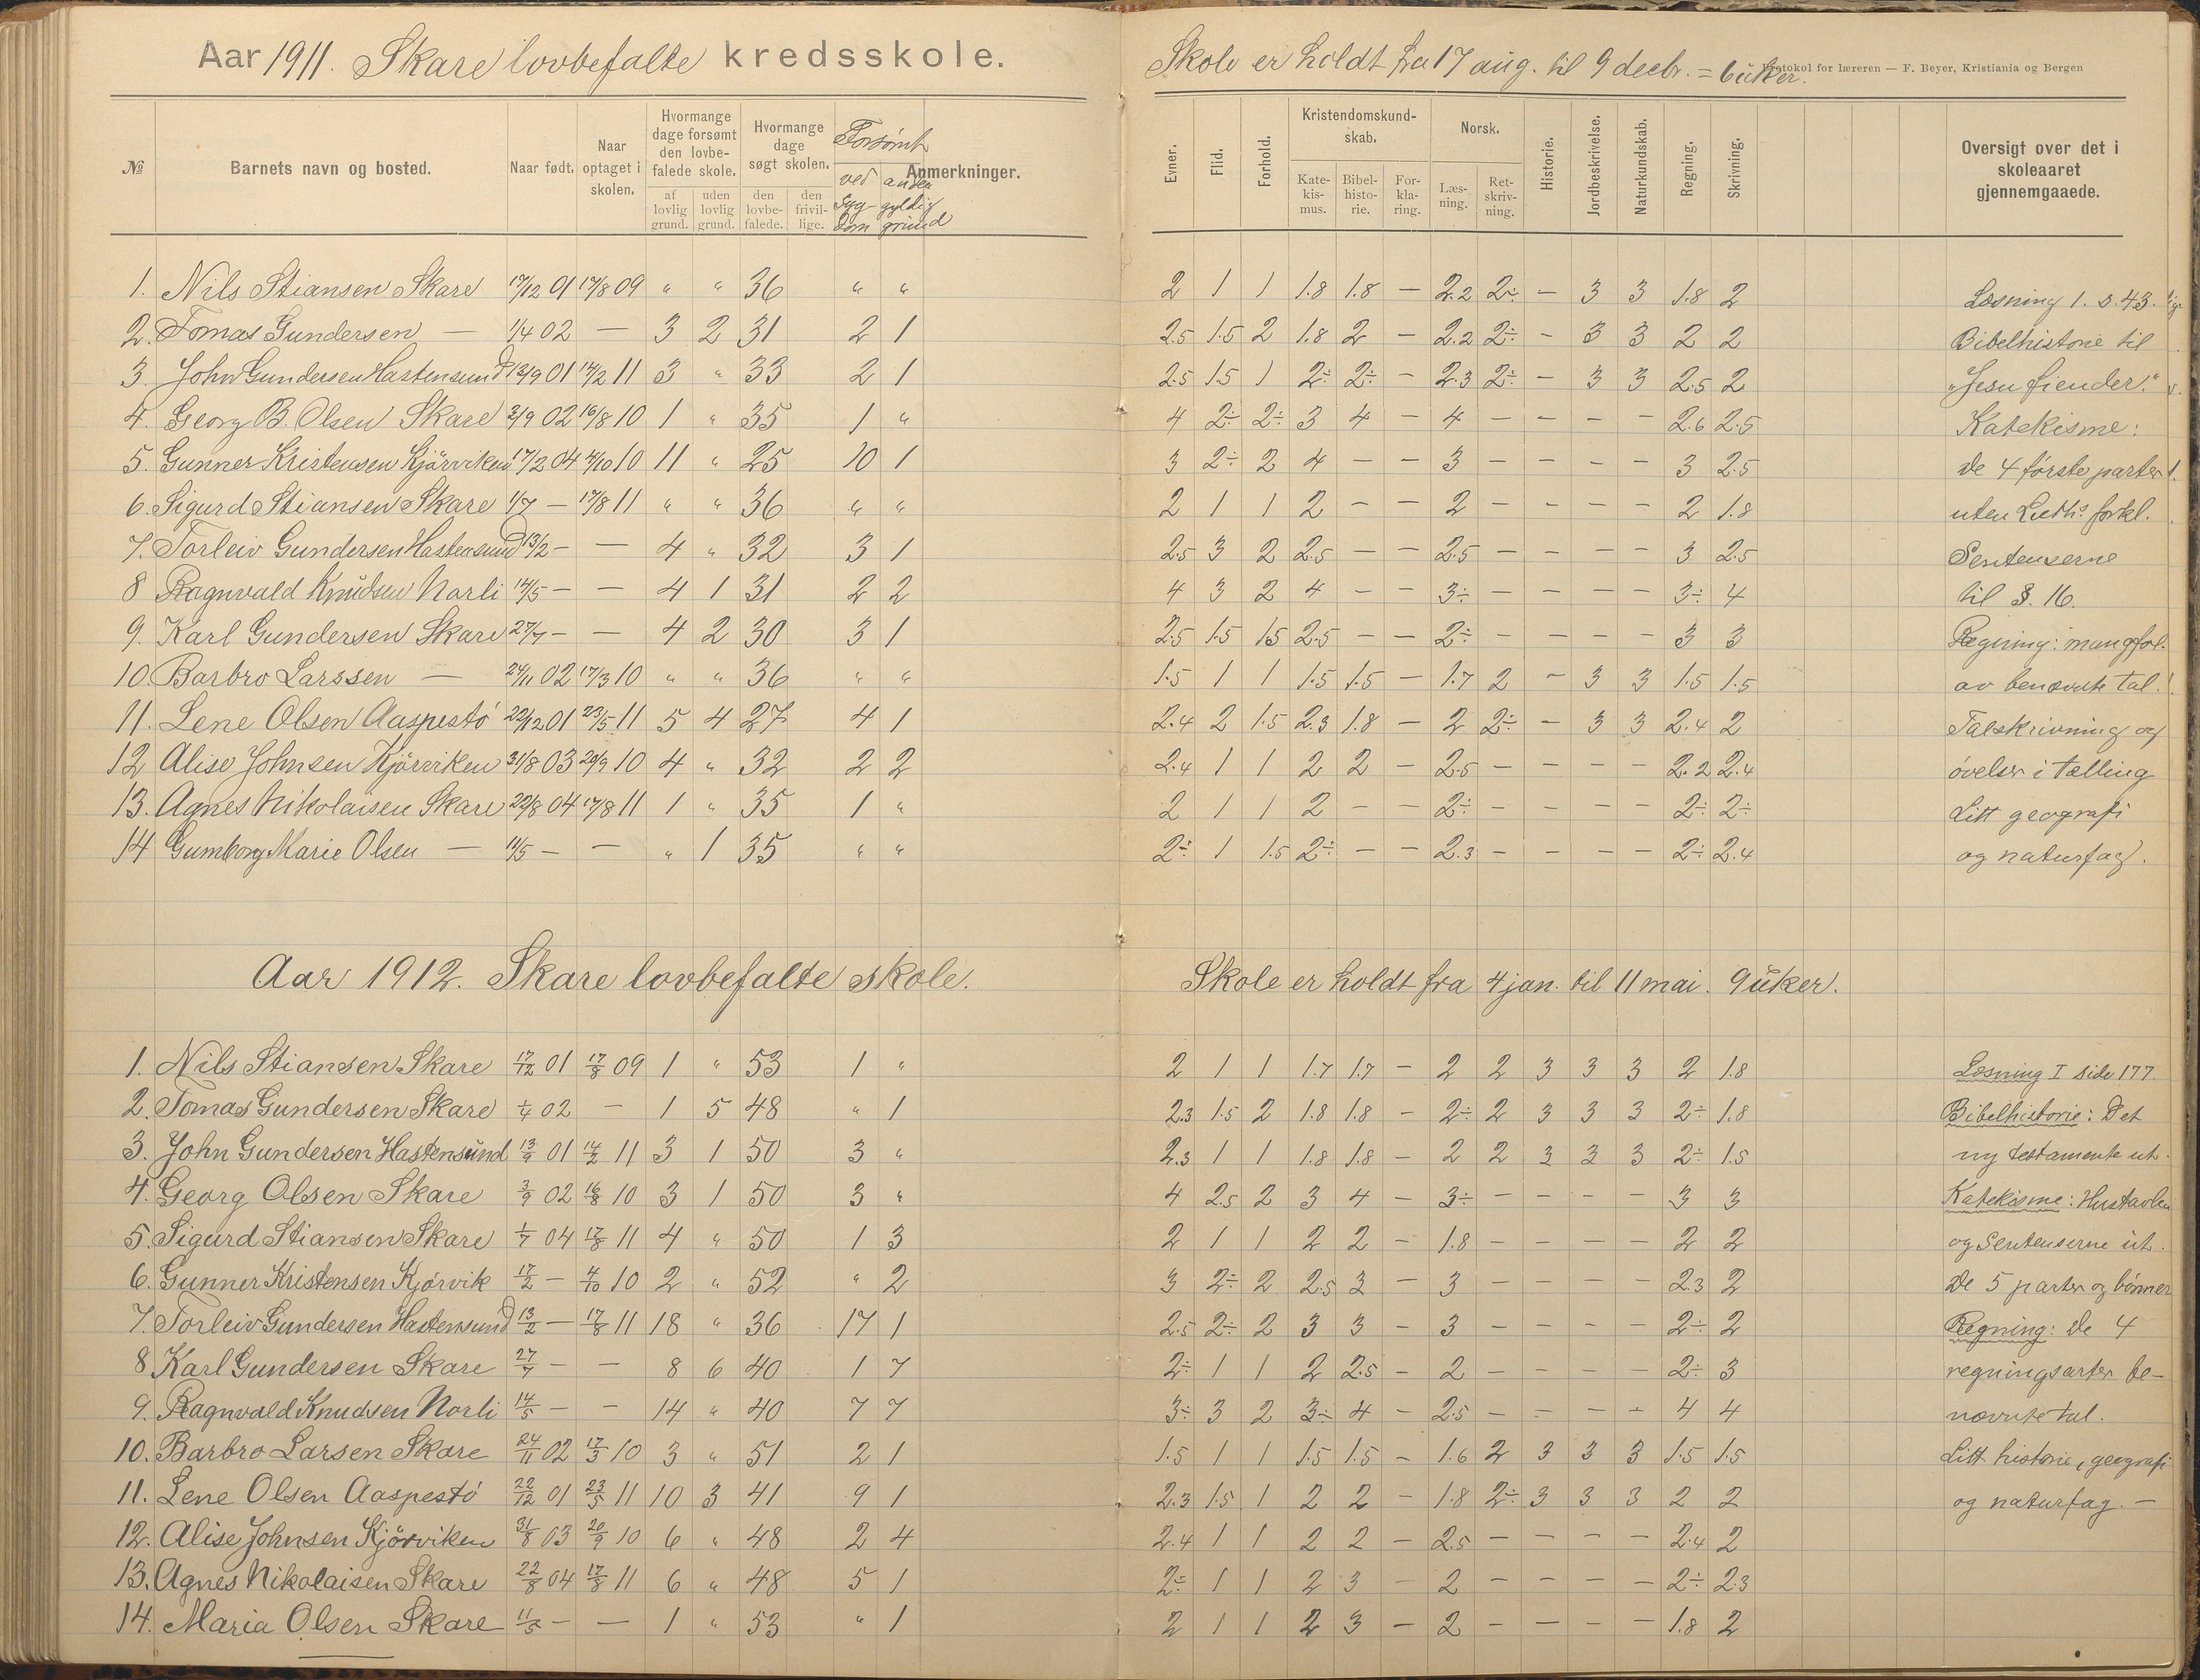 Aar 1911. Skare lovbefalte kredsskole.
Skole er holdt fra 17 aug. til 9 decbr. = 6 uker.
Protokol for læreren — F. Beyer, Kristiania og Bergen
№ Barnets navn og bosted. Naar født. Naar optaget i skolen. Hvormange dage forsømt den lovbefalede skole. af lovlig grund. uden lovlig grund. Hvormange dage søgt skolen. den lovbefalede. den frivillige. Forsømt ved sygdom anden gyldig grund Anmerkninger.
Evner. Flid. Forhold. Kristendomskundskab. Katekismus. Bibelhistorie. Forklaring. Norsk. Læsning. Retskrivning. Historie. Jordbeskrivelse. Naturkundskab. Regning. Skrivning. Oversigt over det i skoleaaret gjennemgaaede.
1. Nils Stiansen Skare 17/12 01 17/8 09 " " 36 " " 2 1 1 1.8 1.8 — 2.2 2÷ — 3 3 1.8 2 Læsning 1. s. 43.
2. Tomas Gundersen — 1/4 02 — 3 2 31 2 1 2.5 1.5 2 1.8 2 — 2.2 2÷ — 3 3 2 2 Bibelhistorie til
3. John Gundersen Hastensund 13/9 01 14/2 11 3 " 33 2 1 2.5 1.5 1 2÷ 2÷ — 2.3 2÷ — 3 3 2.5 2 "Jesu fiender."
4. Georg B. Olsen Skare 3/9 02 16/8 10 1 " 35 1 " 4 2÷ 2÷ 3 4 — 4 — — — — 2.6 2.5 Katekisme:
5. Gunner Kristensen Kjörviken 17/2 04 4/10 10 11 " 25 10 1 3 2÷ 2 4 — — 3 — — — — 3 2.5 de 4 første parter
6. Sigurd Stiansen Skare 1/7 — 17/8 11 " " 36 " " 2 1 1 2 — — 2 — — — — 2 1.8 uten Luth⁵ forkl.
7. Torleiv Gundersen Hastensund 13/2 — — 4 " 32 3 1 2.5 3 2 2.5 — — 2.5 — — — — 3 2.5 Sentenserne
8 Ragnvald Knudsen Norli 14/5 — — 4 1 31 2 2 4 3 2 4 — — 3÷ — — — — 3÷ 4 til §. 16.
9. Karl Gundersen Skare 27/7 — — 4 2 30 3 1 2.5 1.5 1.5 2.5 — — 2÷ — — — — 3 3 Regning: mangfol.
10. Barbro Larssen — 24/11 02 17/3 10 " " 36 " " 1.5 1 1 1.5 1.5 — 1.7 2 — 3 3 1.5 1.5 av benævnte tal.
11. Lene Olsen Aaspestö 22/12 01 23/5 11 5 4 27 4 1 2.4 2 1.5 2.3 1.8 — 2 2÷ — 3 3 2.4 2 Talskrivning og
12 Alise Johnsen Kjörviken 31/8 03 20/9 10 4 " 32 2 2 2.4 1 1 2 2 — 2.5 — — — — 2.2 2.4 övelser i tælling
13. Agnes Nikolaisen Skare 22/8 04 17/8 11 1 " 35 1 " 2 1 1 2 — — 2÷ — — — — 2÷ 2÷ Litt geografi
14 Gumborg Marie Olsen — 11/5 — — " 1 35 " " 2÷ 1 1.5 2÷ — — 2.3 — — — — 2÷ 2.4 og naturfag.
Aar 1912. Skare lovbefalte skole.
Skole er holdt fra 4 jan. til 11 mai. 9 uker.
1. Nils Stiansen Skare 17/12 01 17/8 09 1 " 53 1 " 2 1 1 1.7 1.7 — 2 2 3 3 3 2 1.8 Læsning I side 177.
2. Tomas Gundersen Skare 1/4 02 — 1 5 48 " 1 2.3 1.5 2 1.8 1.8 — 2÷ 2 3 3 3 2÷ 1.8 Bibelhistorie: Det
3. John Gundersen Hastensund 13/9 01 14/2 11 3 1 50 3 " 2.3 1 1 1.8 1.8 — 2 2 3 3 3 2÷ 1.5 ny testamente ut.
4. Georg Olsen Skare 3/9 02 16/8 10 3 1 50 3 " 4 2.5 2 3 4 — 3÷ — — — — 3 3 Katekisme: Hustavlen
5. Sigurd Stiansen Skare 1/7 04 17/8 11 4 " 50 1 3 2 1 1 2 2 — 1.8 — — — — 2 2 og Sentenserne ut.
6. Gunner Kristensen Kjörvik 17/2 — 4/10 10 2 " 52 " 2 3 2÷ 2 2.5 3 — 3 — — — — 2.3 2 De 5 parter og bönner
7. Torleiv Gundersen Hastensund 13/2 — 17/8 11 18 " 36 17 1 2.5 2÷ 2 3 3 — 3 — — — — 2÷ 2 Regning: De 4
8 Karl Gundersen Skare 27/7 — — 8 6 40 1 7 2÷ 1 1 2 2.5 — 2 — — — — 2÷ 3 regningsarter be-
9. Ragnvald Knudsen Norli 14/5 — — 14 " 40 7 7 3÷ 3 2 3÷ 4 — 2.5 — — — — 4 4 nævnte tal.
10. Barbro Larsen Skare 24/11 02 17/3 10 3 " 51 2 1 1.5 1 1 1.5 1.5 — 1.6 2 3 3 3 1.5 1.5 Litt historie, geografi
11. Lene Olsen Aaspestö 22/12 01 23/5 11 10 3 41 9 1 2.3 1.5 1 2 2 — 1.8 2÷ 3 3 3 2 2 og naturfag. —
12. Alise Johnsen Kjörviken 31/8 03 20/9 10 6 " 48 2 4 2.4 1 1 2 2 — 2.5 — — — — 2.4 2
13. Agnes Nikolaisen Skare 22/8 04 17/8 11 6 " 48 5 1 2÷ 1 1 2 3 — 2 — — — — 2÷ 2.3
14. Maria Olsen Skare 11/5 — — 1 " 53 " 1 2 1 1 2 3 — 2 — — — — 1.8 2